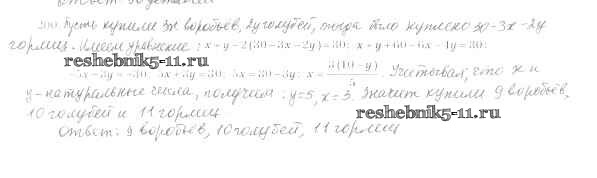 Ответ: 30 деталей
290. Пусть купили 3x воробьев, 2y голубей, тогда было куплено 30-3x-2y
горлиц. Имеем уравнение: x+y+2(30-3x-2y)=30; x+y+60-6x-4y=30;
reshebnik5-11.ru
-5x-3y=-30; 5x+3y=30; 5x=30-3y; x=3(10-y)/5. Учитывая, что x и
y-натуральные числа, получаем: y=5, x=3. Значит купили 9 воробьев,
reshebnik5-11.ru
10 голубей и 11 горлиц
Ответ: 9 воробьев, 10 голубей, 11 горлиц